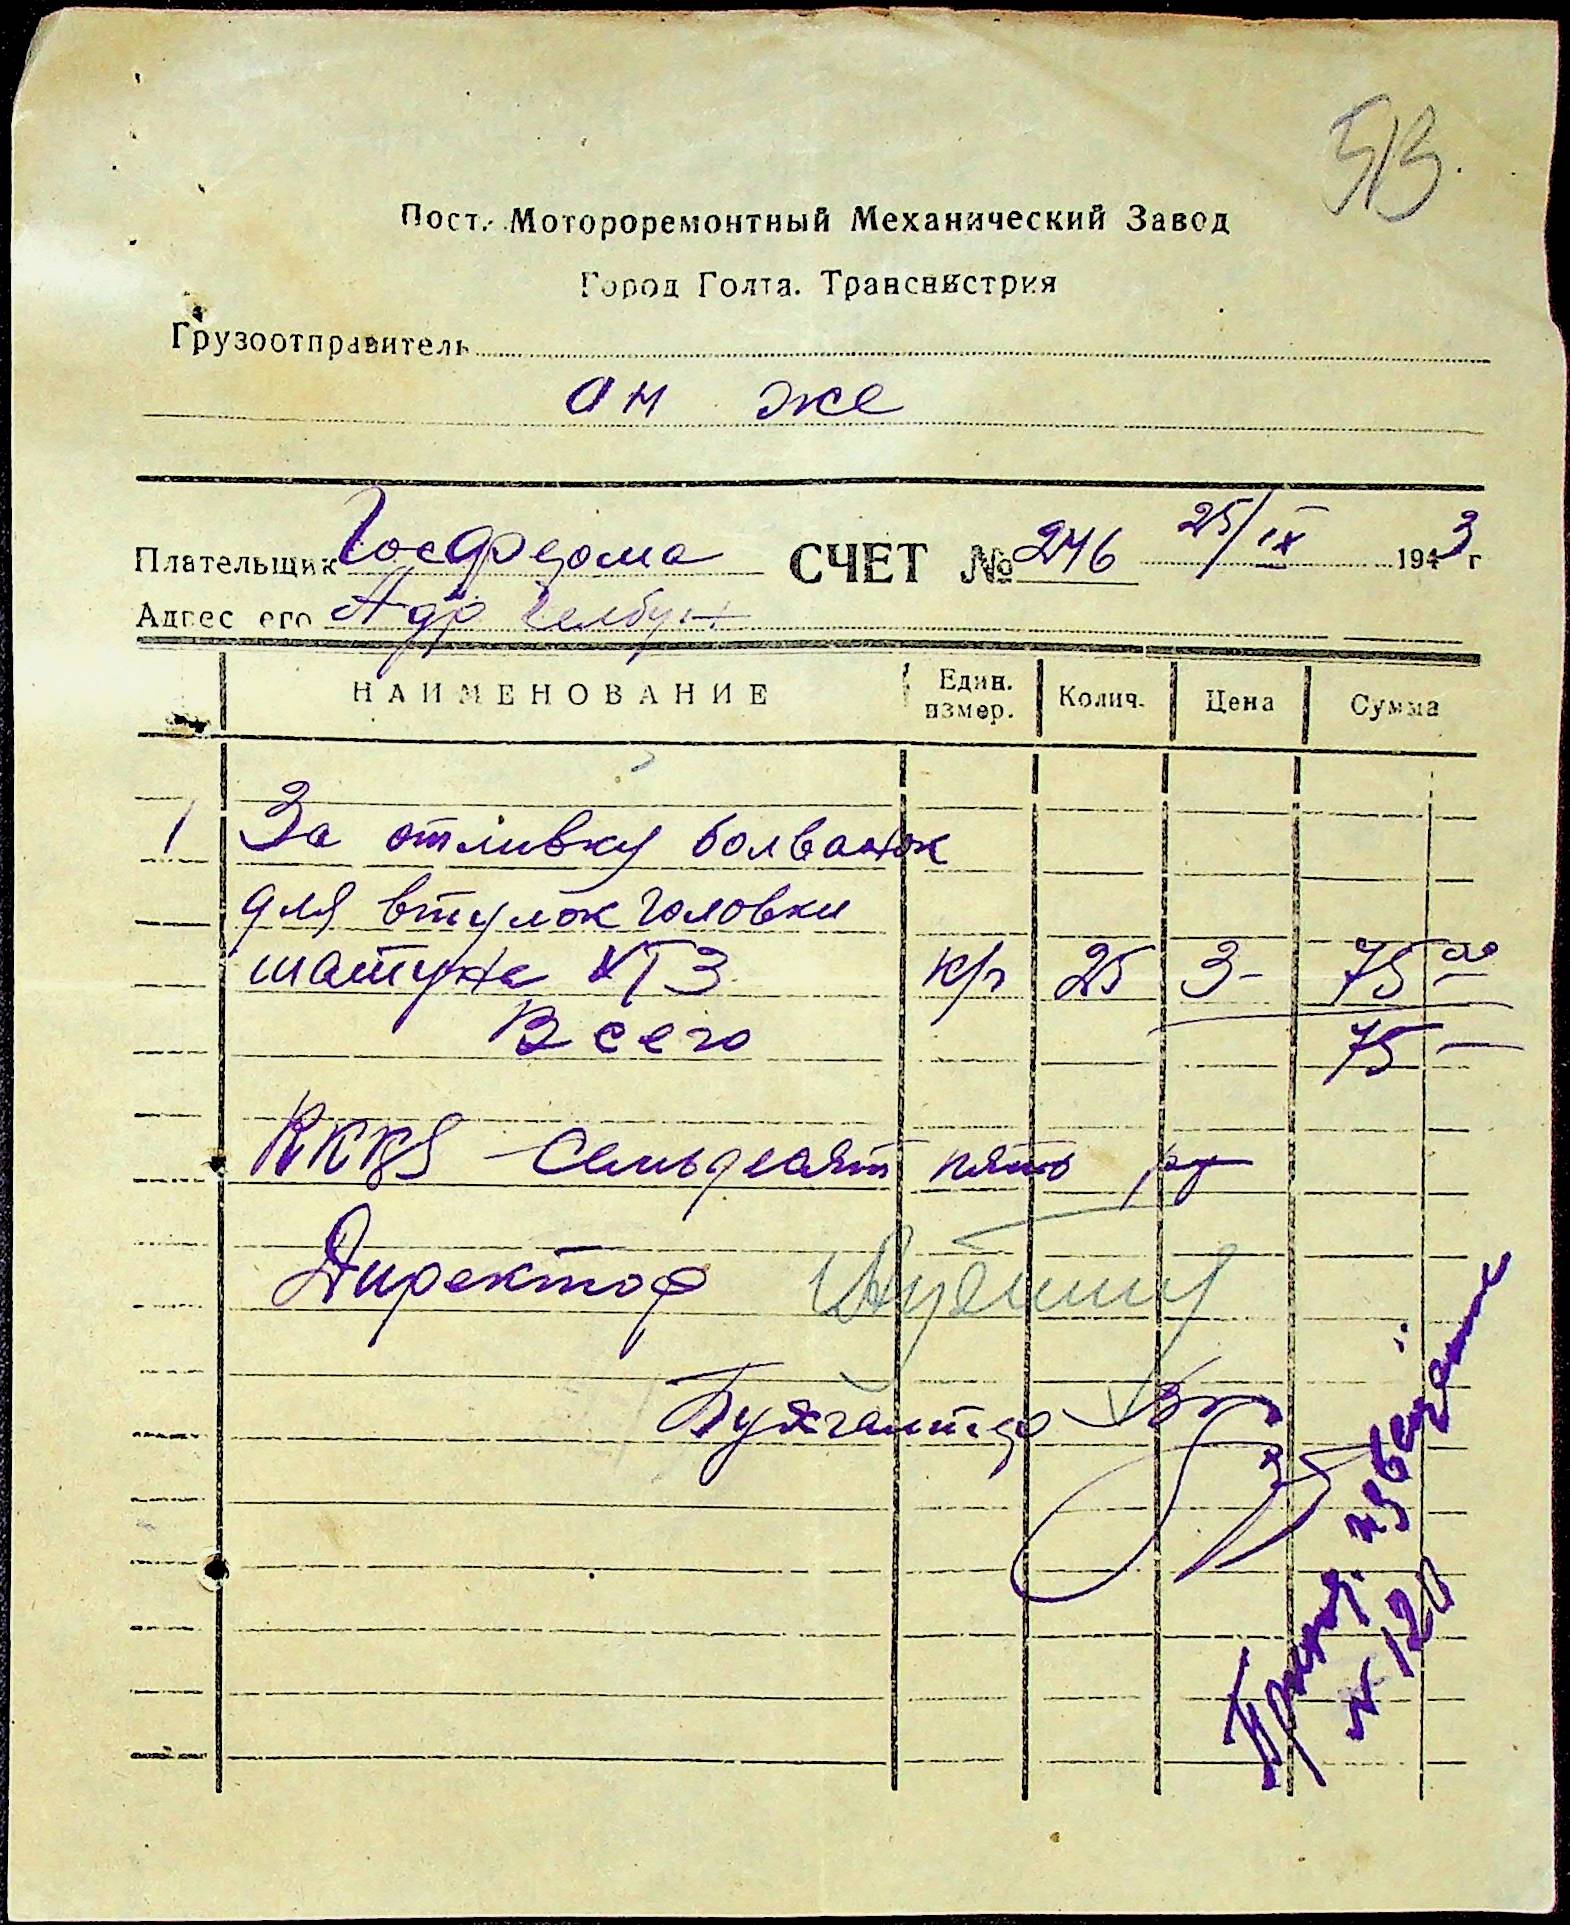 513
Пост. Мотороремонтный Механический Завод
Город Голта. Транснистрия
Грузоотправитель
он же
Плательщик Госферма СЧЕТ № 246 25/IX 1943 г
Адрес его
НАИМЕНОВАНИЕ Един. измер. Колич. Цена Сумма
1 За отливку болванок
для втулок головки
шатуна ХТЗ кг 25 3- 75 00
Всего 75 —
RKKS Семьдесят пять
Директор
Бухгалтер
извещение
№ 120